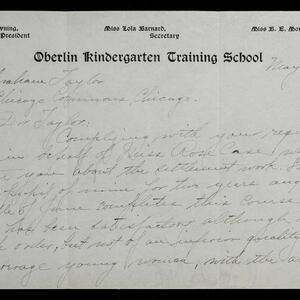 wning,
President
Miss Lola Barnard,
Secretary
Miss B. E. Mon
Oberlin Kindergarten Training School
May
raham Taylor
Chicago Commons Chicago.
Dr Taylor:
Complying with your req
in behalf of Miss Rose Case
you about the settlement work.
pupil of mine for two years and
of June completes this Course
has been satisfactory although
order, but not of an inferior quality
average young women, with the